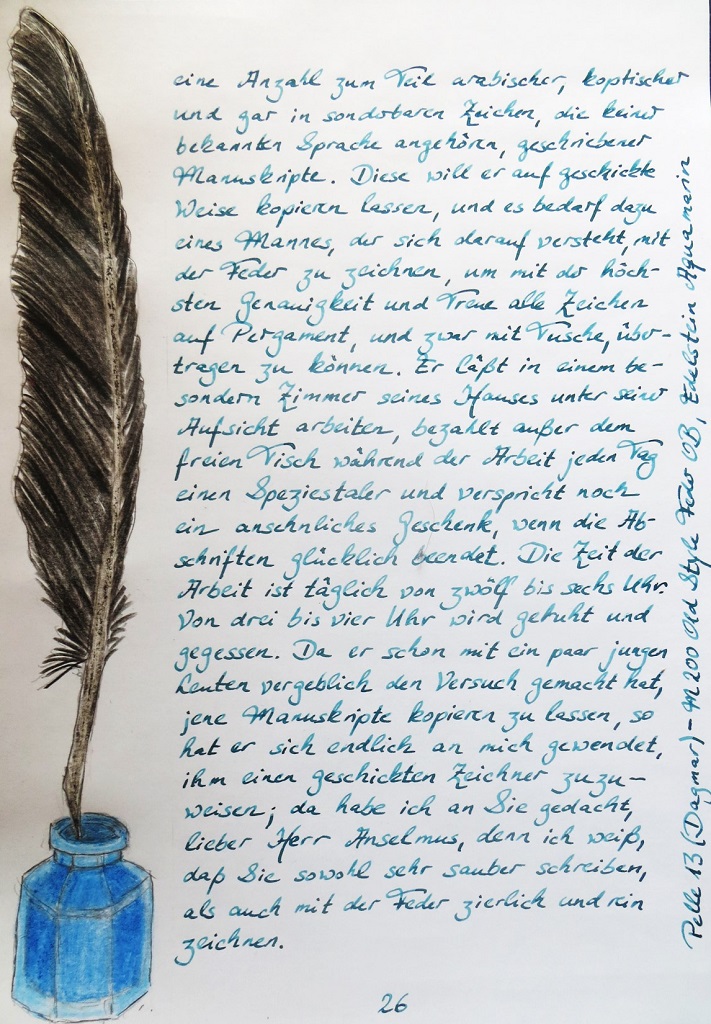 eine Anzahl zum Teil arabischer, koptischer
und gar in sonderbaren Zeichen, die keiner
bekannten Sprache angehören, geschriebener
Manuskripte. Diese will er auf geschickte
Weise kopieren lassen, und es bedarf dazu
eines Mannes, der sich darauf versteht, mit
der Feder zu zeichnen, um mit der höch-
sten Genauigkeit und Treue alle Zeichen
auf Pergament, und zwar mit Tusche, über-
tragen zu können. Er läßt in einem be-
sondern Zimmer seines Hauses unter seiner
Aufsicht arbeiten, bezahlt außer dem
freien Tisch während der Arbeit jeden Tag
einen Speziestaler und verspricht noch
ein ansehnliches Geschenk, wenn die Ab-
schriften glücklich beendet. Die Zeit der
Arbeit ist täglich von zwölf bis sechs Uhr.
Von drei bis vier Uhr wird geruht und
gegessen. Da er schon mit ein paar jungen
Leuten vergeblich den Versuch gemacht hat,
jene Manuskripte kopieren zu lassen, so
hat er sich endlich an mich gewendet,
ihm einen geschickten Zeichner zuzu-
weisen; da habe ich an Sie gedacht,
lieber Herr Anselmus, denn ich weiß,
daß Sie sowohl sehr sauber schreiben,
als auch mit der Feder zierlich und rein
zeichnen.
26
Pelle 13 (Dagmar) - M200 Old Style Feder OB, Edelstein Aquamarin